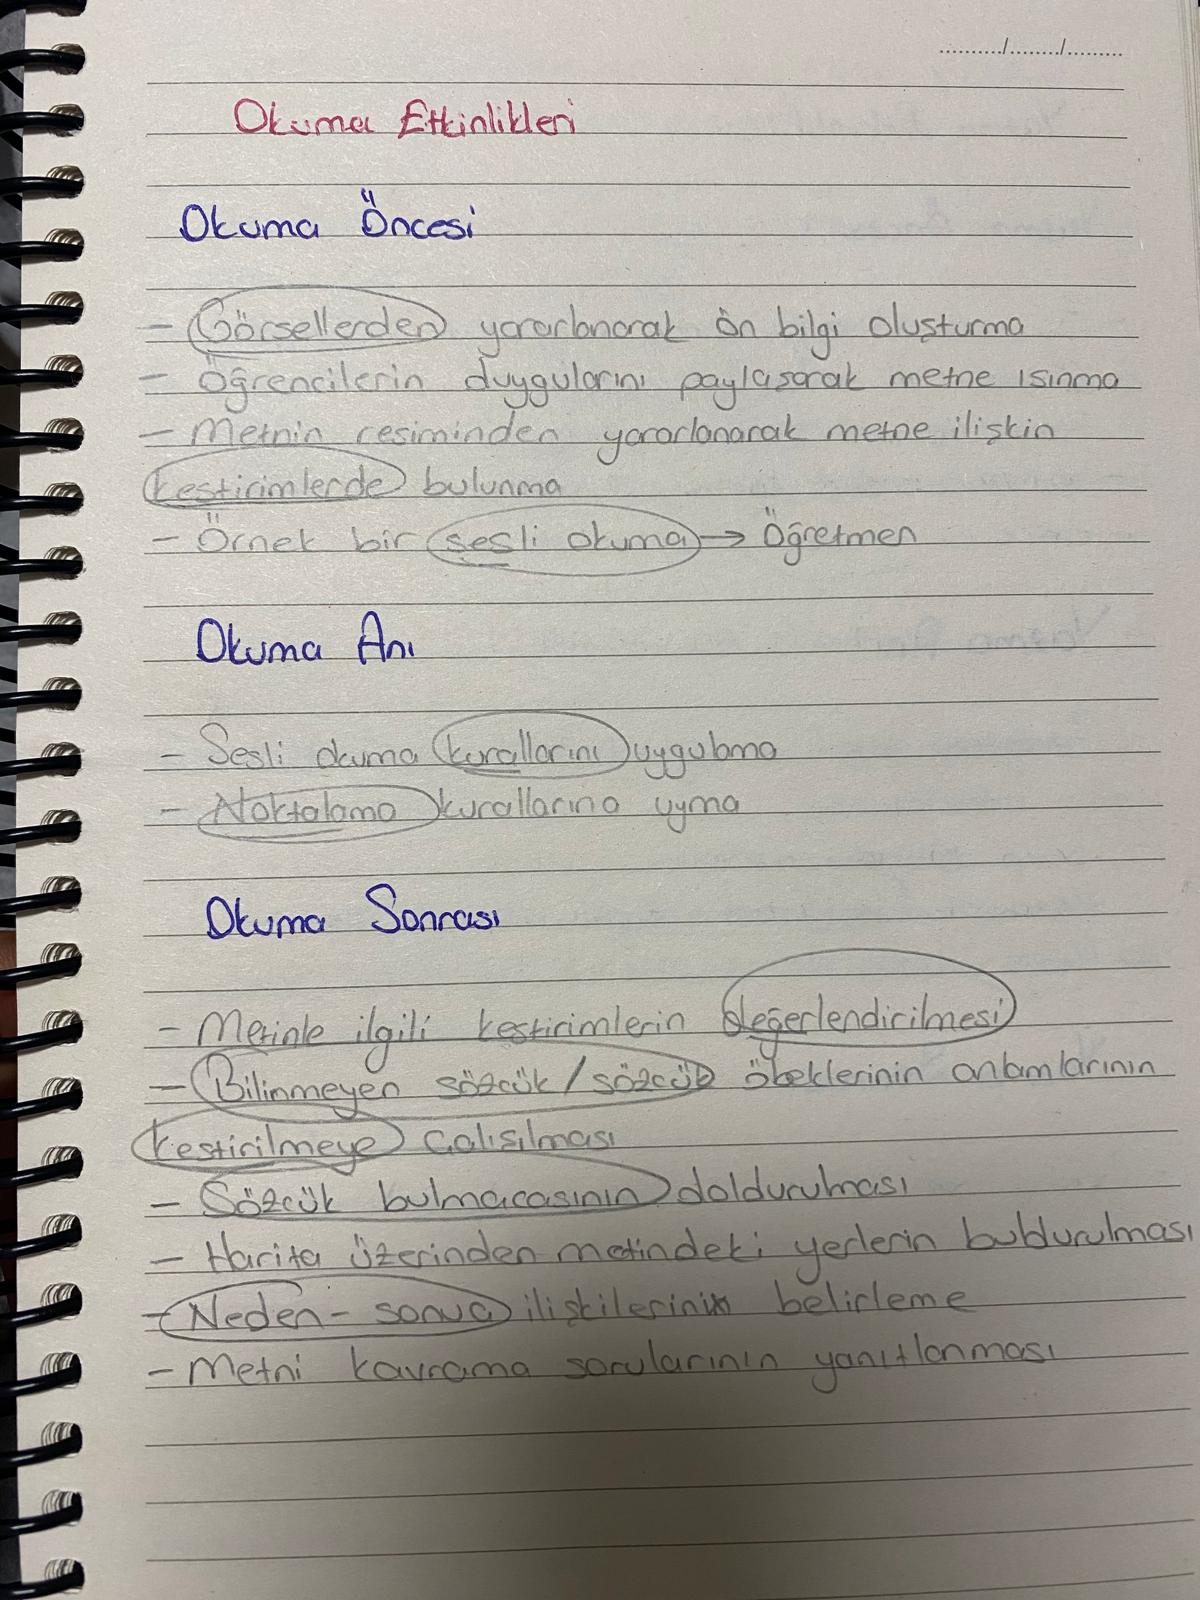 ........../......../.........
Okuma Etkinlikleri
Okuma Öncesi
- Görsellerden yararlanarak ön bilgi oluşturma
- Öğrencilerin duygularını paylaşarak metne ısınma
- Metnin resiminden yararlanarak metne ilişkin
kestirimlerde bulunma
- Örnek bir sesli okuma → Öğretmen
Okuma Anı
- Sesli okuma kurallarını uygulama
- Noktalama kurallarına uyma
Okuma Sonrası
- Metinle ilgili kestirimlerin değerlendirilmesi
- Bilinmeyen sözcük / sözcük öbeklerinin anlamlarının
kestirilmeye çalışılması
- Sözcük bulmacasının doldurulması
- Harita üzerinden metindeki yerlerin buldurulması
- Neden - sonuç ilişkilerinin belirleme
- Metni kavrama sorularının yanıtlanması